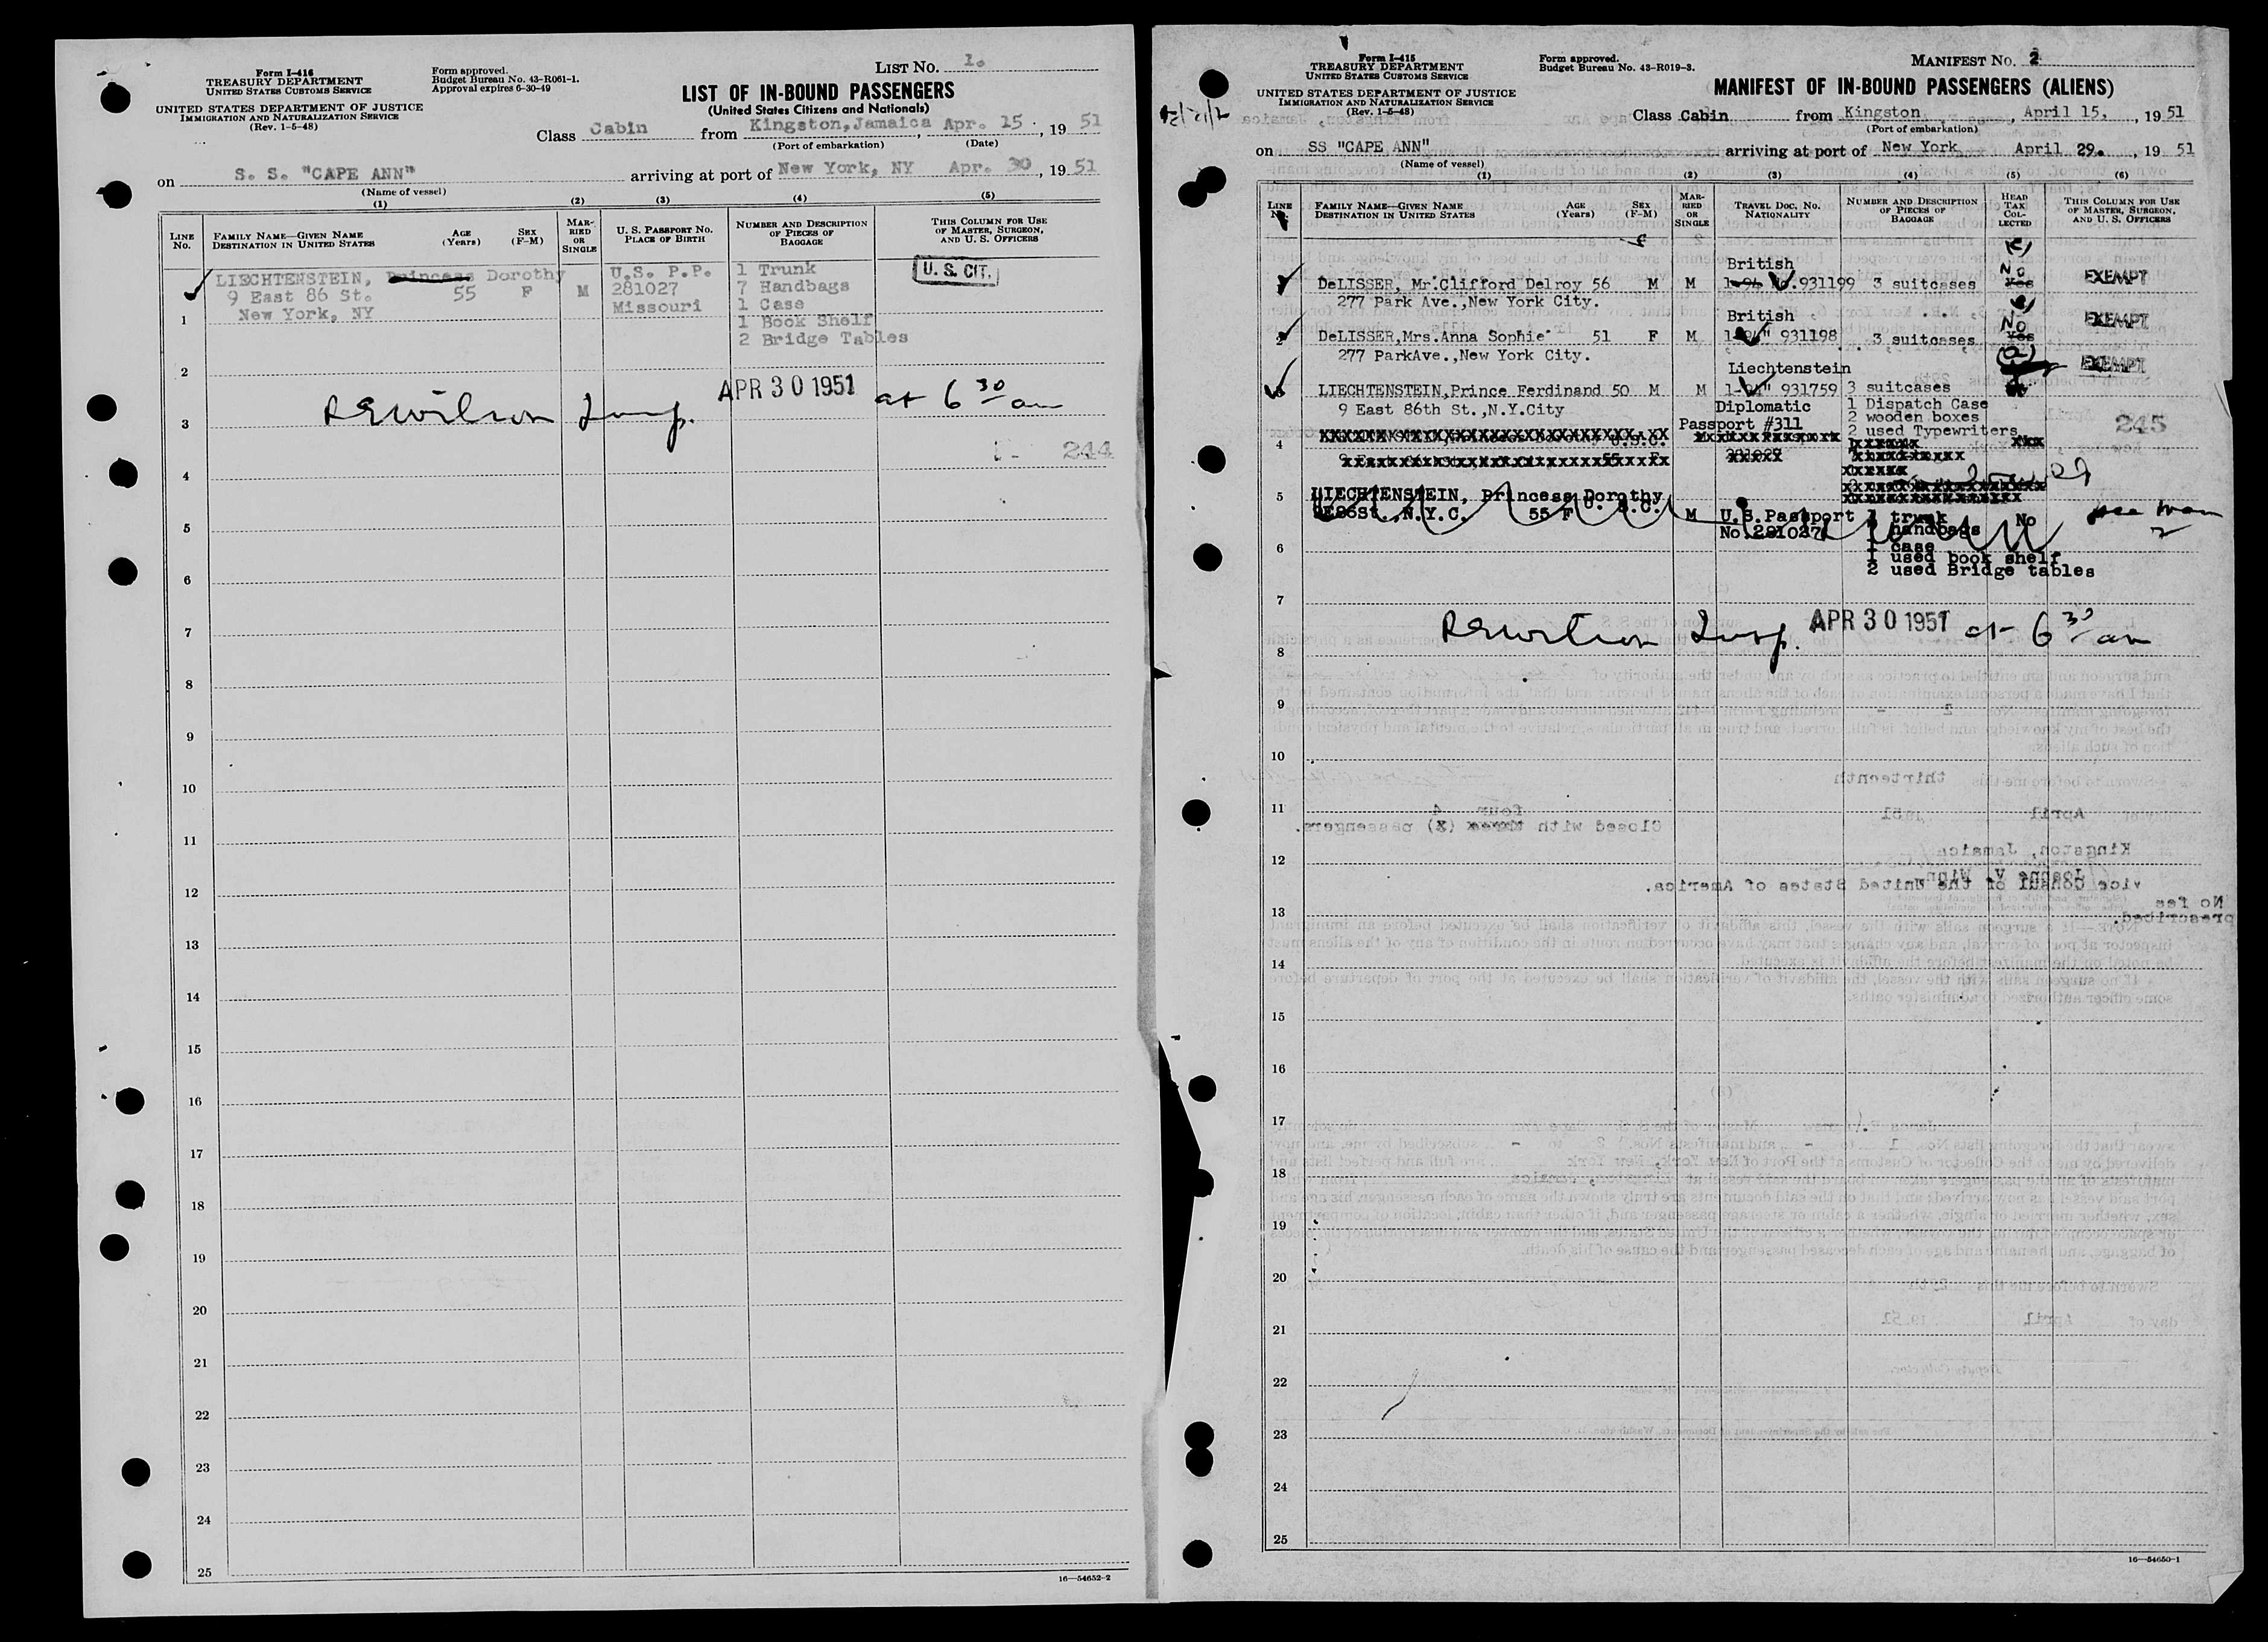 Form I-416
TREASURY DEPARTMENT
UNITED STATES CUSTOMS SERVICE
UNITED STATES DEPARTMENT OF JUSTICE
IMMIGRATION AND NATURALIZATION SERVICE
(Rev. 1-5-48)
Form approved.
Budget Bureau No. 43-R061-1.
Approval expires 6-30-49
LIST NO. 1.
LIST OF IN-BOUND PASSENGERS
(United States Citizens and Nationals)
Class Cabin from Kingston, Jamaica Apr. 15, 19 51
(Port of embarkation) (Date)
on S. S. "CAPE ANN" arriving at port of New York, NY Apr. 30, 19 51
(Name of vessel)
(1) (2) (3) (4) (5)
LINE No.
FAMILY NAME—GIVEN NAME
DESTINATION IN UNITED STATES
AGE (Years)
SEX (F-M)
MARRIED OR SINGLE
U. S. PASSPORT NO.
PLACE OF BIRTH
NUMBER AND DESCRIPTION OF PIECES OF BAGGAGE
THIS COLUMN FOR USE OF MASTER, SURGEON, AND U. S. OFFICERS
LIECHTENSTEIN, Princess Dorothy U.S. P.P. 1 Trunk U. S. CIT.
9 East 86 St. 55 F M 281027 7 Handbags
New York, NY Missouri 1 Case
1 1 Book Shelf
2 Bridge Tables
2
APR 30 1951 at 6 30 am
REWilson Insp.
3
244
4
5
6
7
8
9
10
11
12
13
14
15
16
17
18
19
20
21
22
23
24
25
16—54652-2
Form I-415
TREASURY DEPARTMENT
UNITED STATES CUSTOMS SERVICE
UNITED STATES DEPARTMENT OF JUSTICE
IMMIGRATION AND NATURALIZATION SERVICE
(Rev. 1-5-48)
Form approved.
Budget Bureau No. 43-R019-3.
MANIFEST NO. 2
MANIFEST OF IN-BOUND PASSENGERS (ALIENS)
Class Cabin from Kingston, April 15, 19 51
(Port of embarkation)
on SS "CAPE ANN" arriving at port of New York April 29. , 19 51
(Name of vessel)
(1) (2) (3) (4) (5) (6)
LINE No.
FAMILY NAME—GIVEN NAME
DESTINATION IN UNITED STATES
AGE (Years)
SEX (F-M)
MARRIED OR SINGLE
TRAVEL DOC. NO.
NATIONALITY
NUMBER AND DESCRIPTION OF PIECES OF BAGGAGE
HEAD TAX COLLECTED
THIS COLUMN FOR USE OF MASTER, SURGEON, AND U. S. OFFICERS
British
DeLISSER, Mr.Clifford Delroy 56 M M No.931199 3 suitcases No Yes EXEMPT
277 Park Ave.,New York City.
British
2 DeLISSER,Mrs.Anna Sophie 51 F M 931198 3 suitcases No Yes EXEMPT
277 ParkAve.,New York City.
Liechtenstein
LIECHTENSTEIN,Prince Ferdinand 50 M M 931759 3 suitcases EXEMPT
9 East 86th St.,N.Y.City Diplomatic 1 Dispatch Case
Passport #311 2 wooden boxes
2 used Typewriters
245
4
5 LIECHTENSTEIN, Princess Dorothy
9E86St.,N.Y.C. 55 F U. S.C. M U.S.Passport 1 trunk No
No.281027 7 handbags
6 1 case
1 used book shelf
2 used Bridge tables
7
REWilson Insp. APR 30 1951 at 6 30 am
8
9
10
11
12
13
14
15
16
17
18
19
20
21
22
23
24
25
16—54650-1